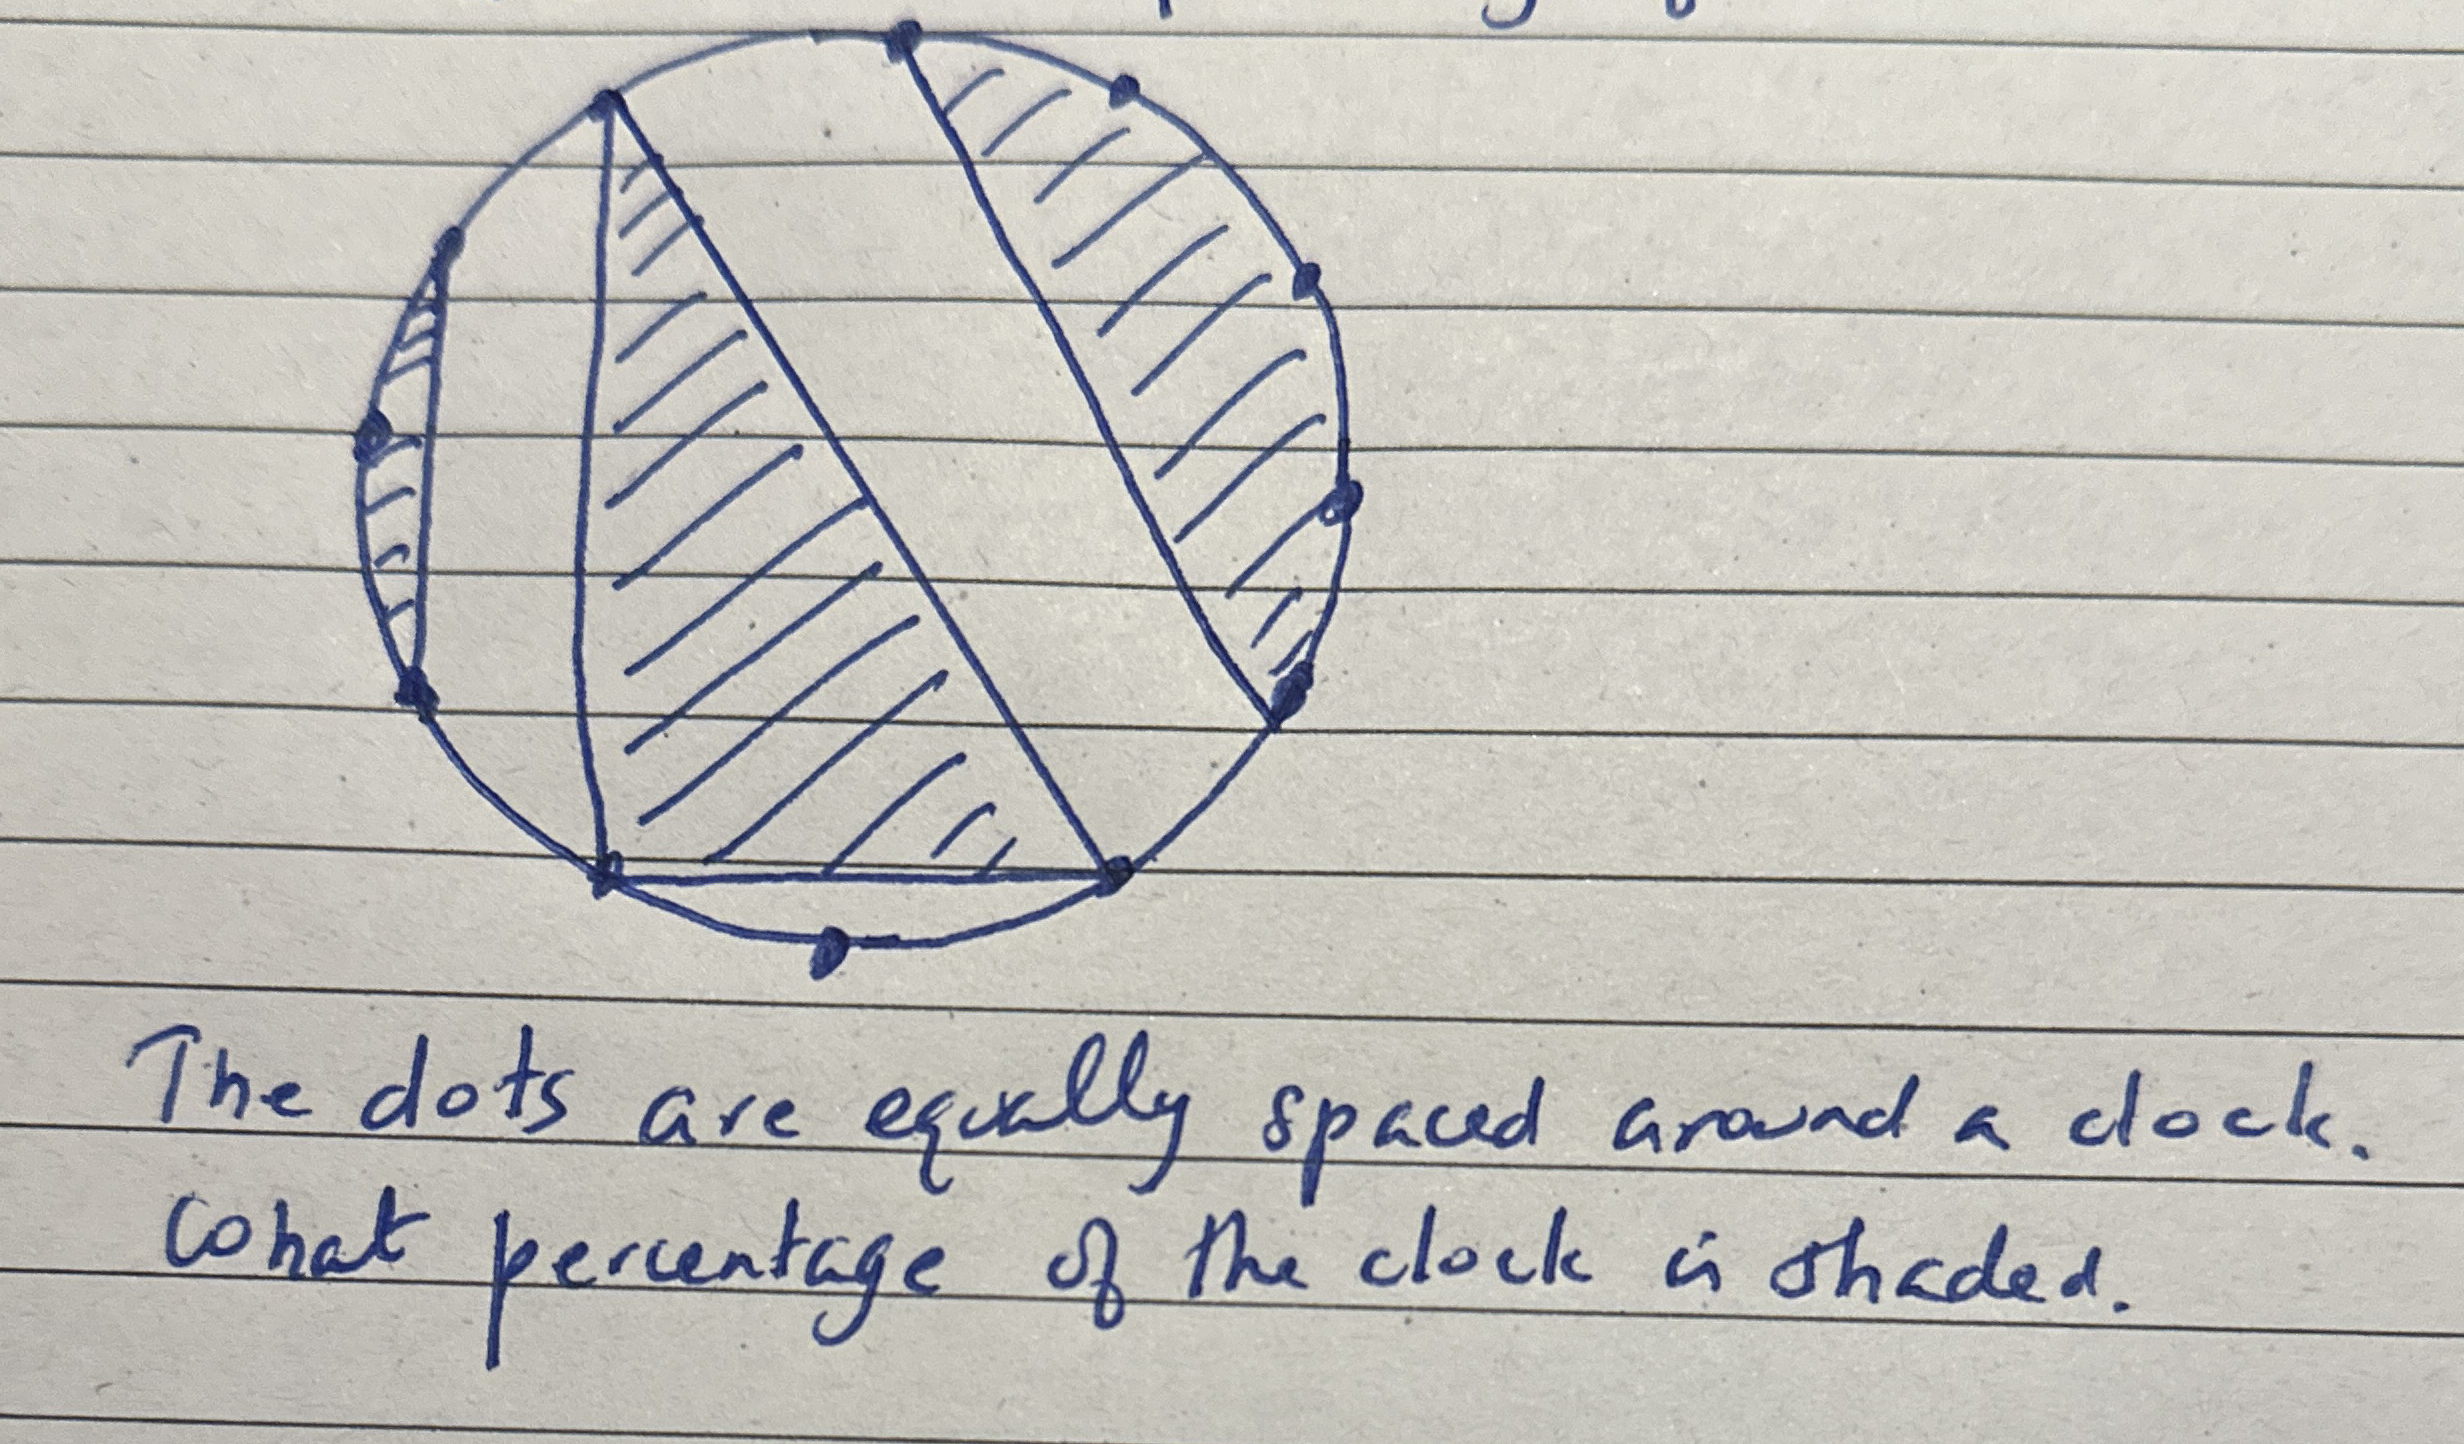 The dots are equally spaced around a clock.
What percentage of the clock is shaded.